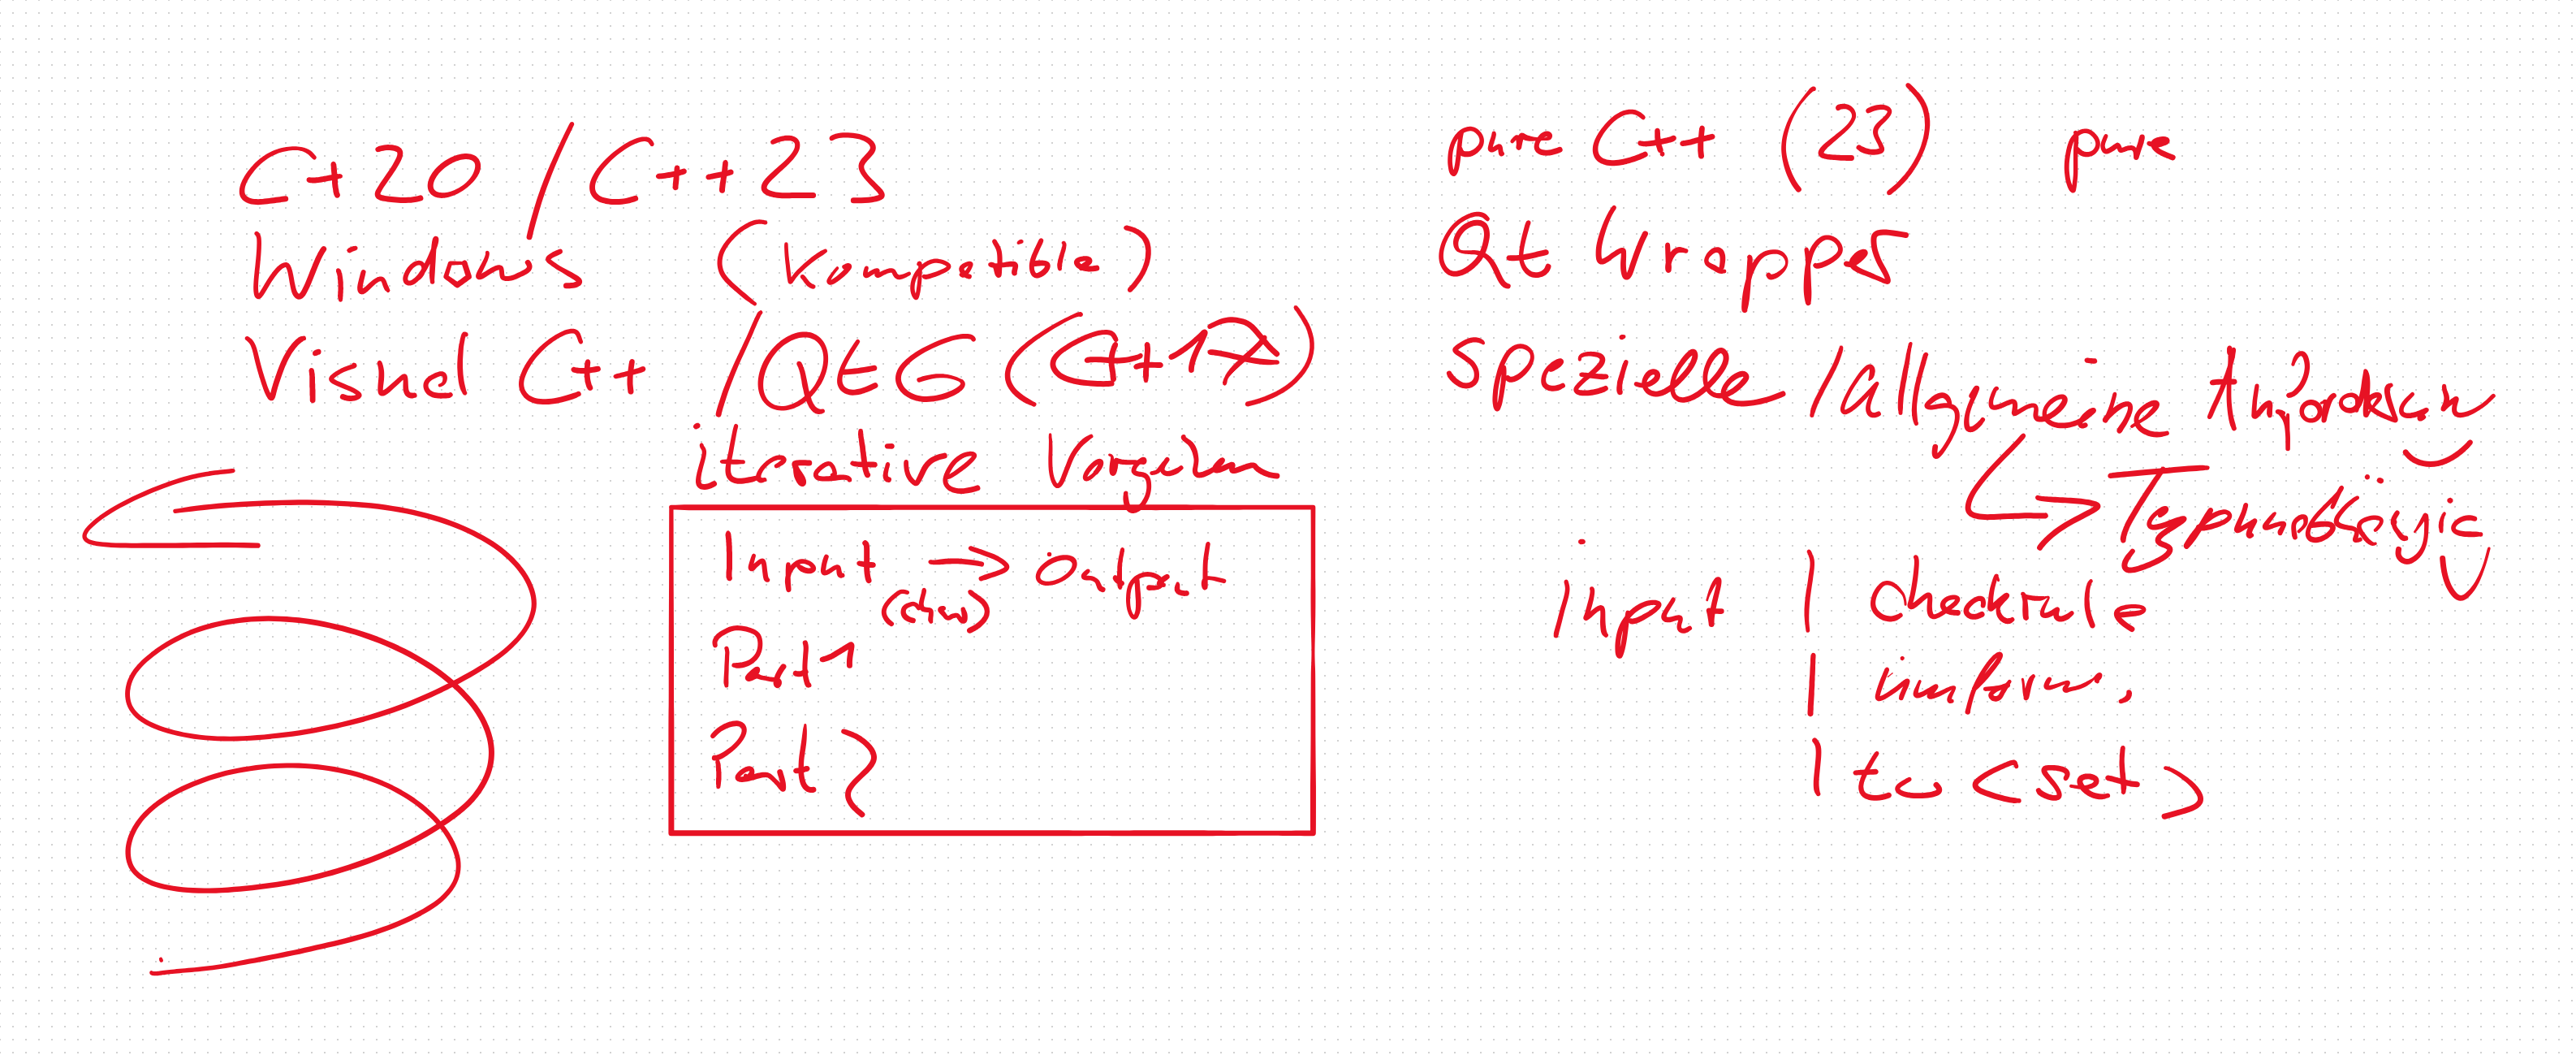 C+20 / C++23
Windows (Kompatible)
Visual C++ / Qt6 (C++17)
iterative Vorgehen
Input → Output
(chow)
Part 1
Part 2
pure C++ (23) pure
Qt Wrapper
spezielle / allgemeine
↳ Typunabhängig
input | checkrule
| umform.
| to <set>